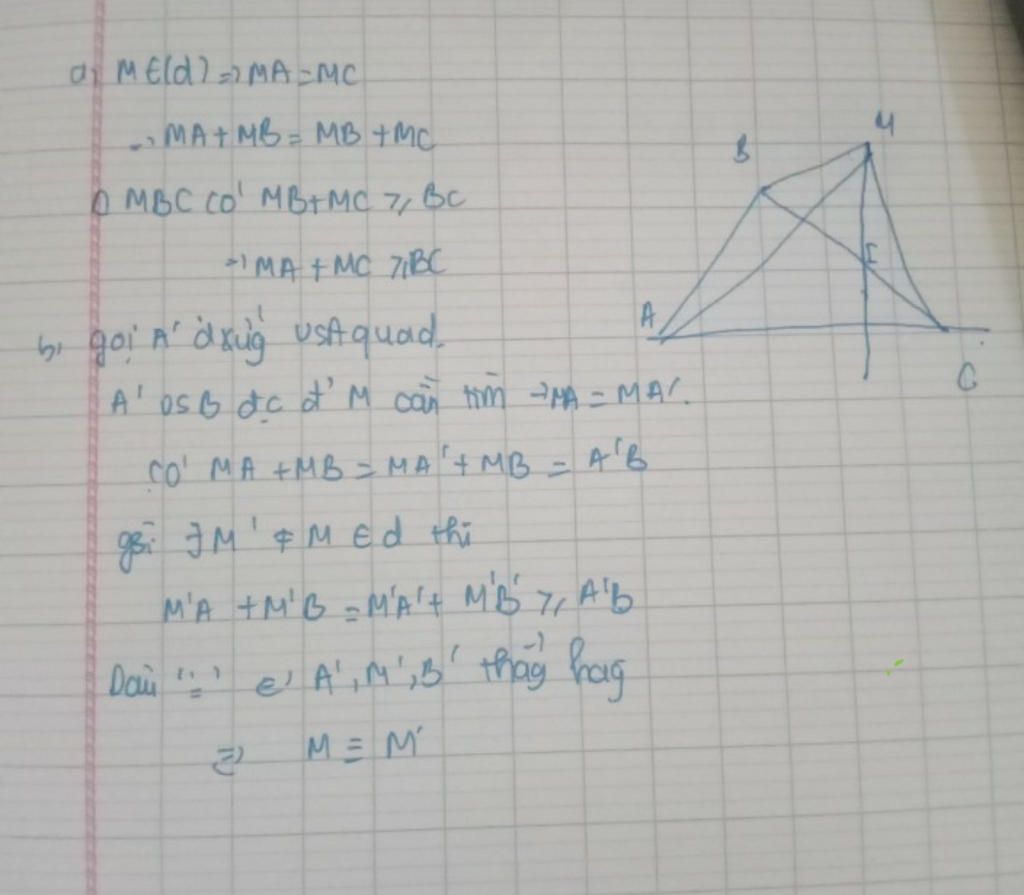 a, M ∈ (d) => MA = MC
-> MA + MB = MB + MC
Δ MBC có MB + MC ≥ BC
-> MA + MC ≥ BC
b, gọi A' đ xứg vs A qua d.
A' vs B đc đ' M cần tìm -> MA = MA'.
có MA + MB = MA' + MB = A'B
gsử ∃ M' ≠ M ∈ d thì
M'A + M'B = M'A' + M'B' ≥ A'B
Dấu "=" <=> A', M', B' thẳg hàg
=> M ≡ M'
B
M
E
A
C